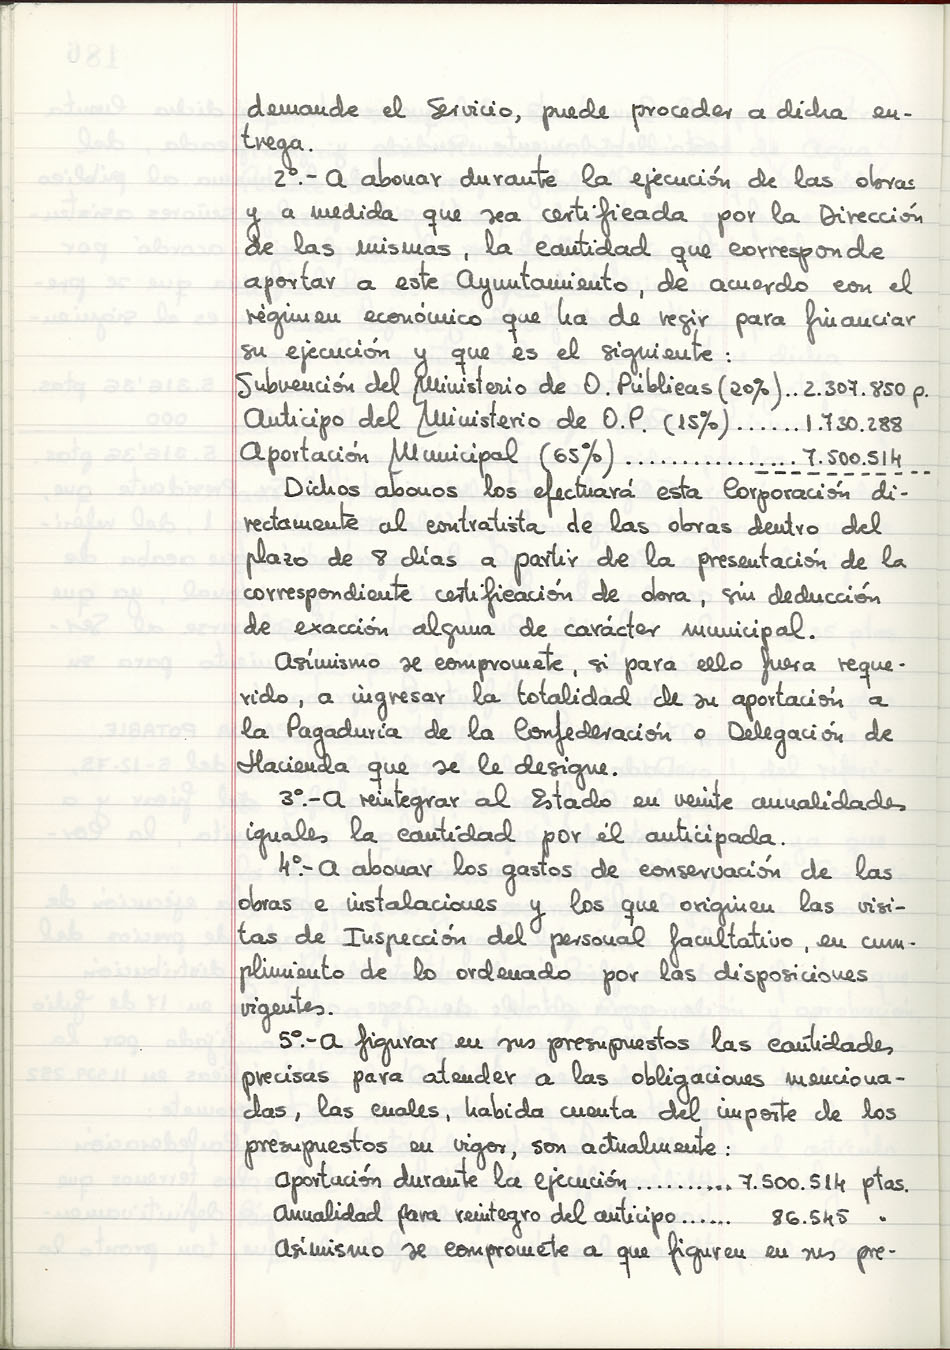 demande el Servicio, puede proceder a dicha en-
trega.
2º.- A abonar durante la ejecución de las obras
y a medida que sea certificada por la Dirección
de las mismas, la cantidad que corresponde
aportar a este Ayuntamiento, de acuerdo con el
régimen económico que ha de regir para financiar
su ejecución y que es el siguiente:
Subvención del Ministerio de O. Públicas (20%)..2.307.850 p.
Anticipo del Ministerio de O.P. (15%).......1.730.288
Aportación Municipal (65%)................7.500.514
Dichos abonos los efectuará esta Corporación di-
rectamente al contratista de las obras dentro del
plazo de 8 días a partir de la presentación de la
correspondiente certificación de obra, sin deducción
de exacción alguna de carácter municipal.
Asimismo se compromete, si para ello fuera reque-
rido, a ingresar la totalidad de su aportación a
la Pagaduría de la Confederación o Delegación de
Hacienda que se le designe.
3º.- A reintegrar al Estado en veinte anualidades
iguales la cantidad por él anticipada.
4º.- A abonar los gastos de conservación de las
obras e instalaciones y los que originen las visi-
tas de Inspección del personal facultativo, en cum-
plimiento de lo ordenado por las disposiciones
vigentes.
5º.- A figurar en sus presupuestos las cantidades
precisas para atender a las obligaciones menciona-
das, las cuales, habida cuenta del importe de los
presupuestos en vigor, son actualmente:
Aportación durante la ejecución.......... 7.500.514 ptas.
Anualidad para reintegro del anticipo...... 86.545 "
Asimismo se compromete a que figuren en sus pre-